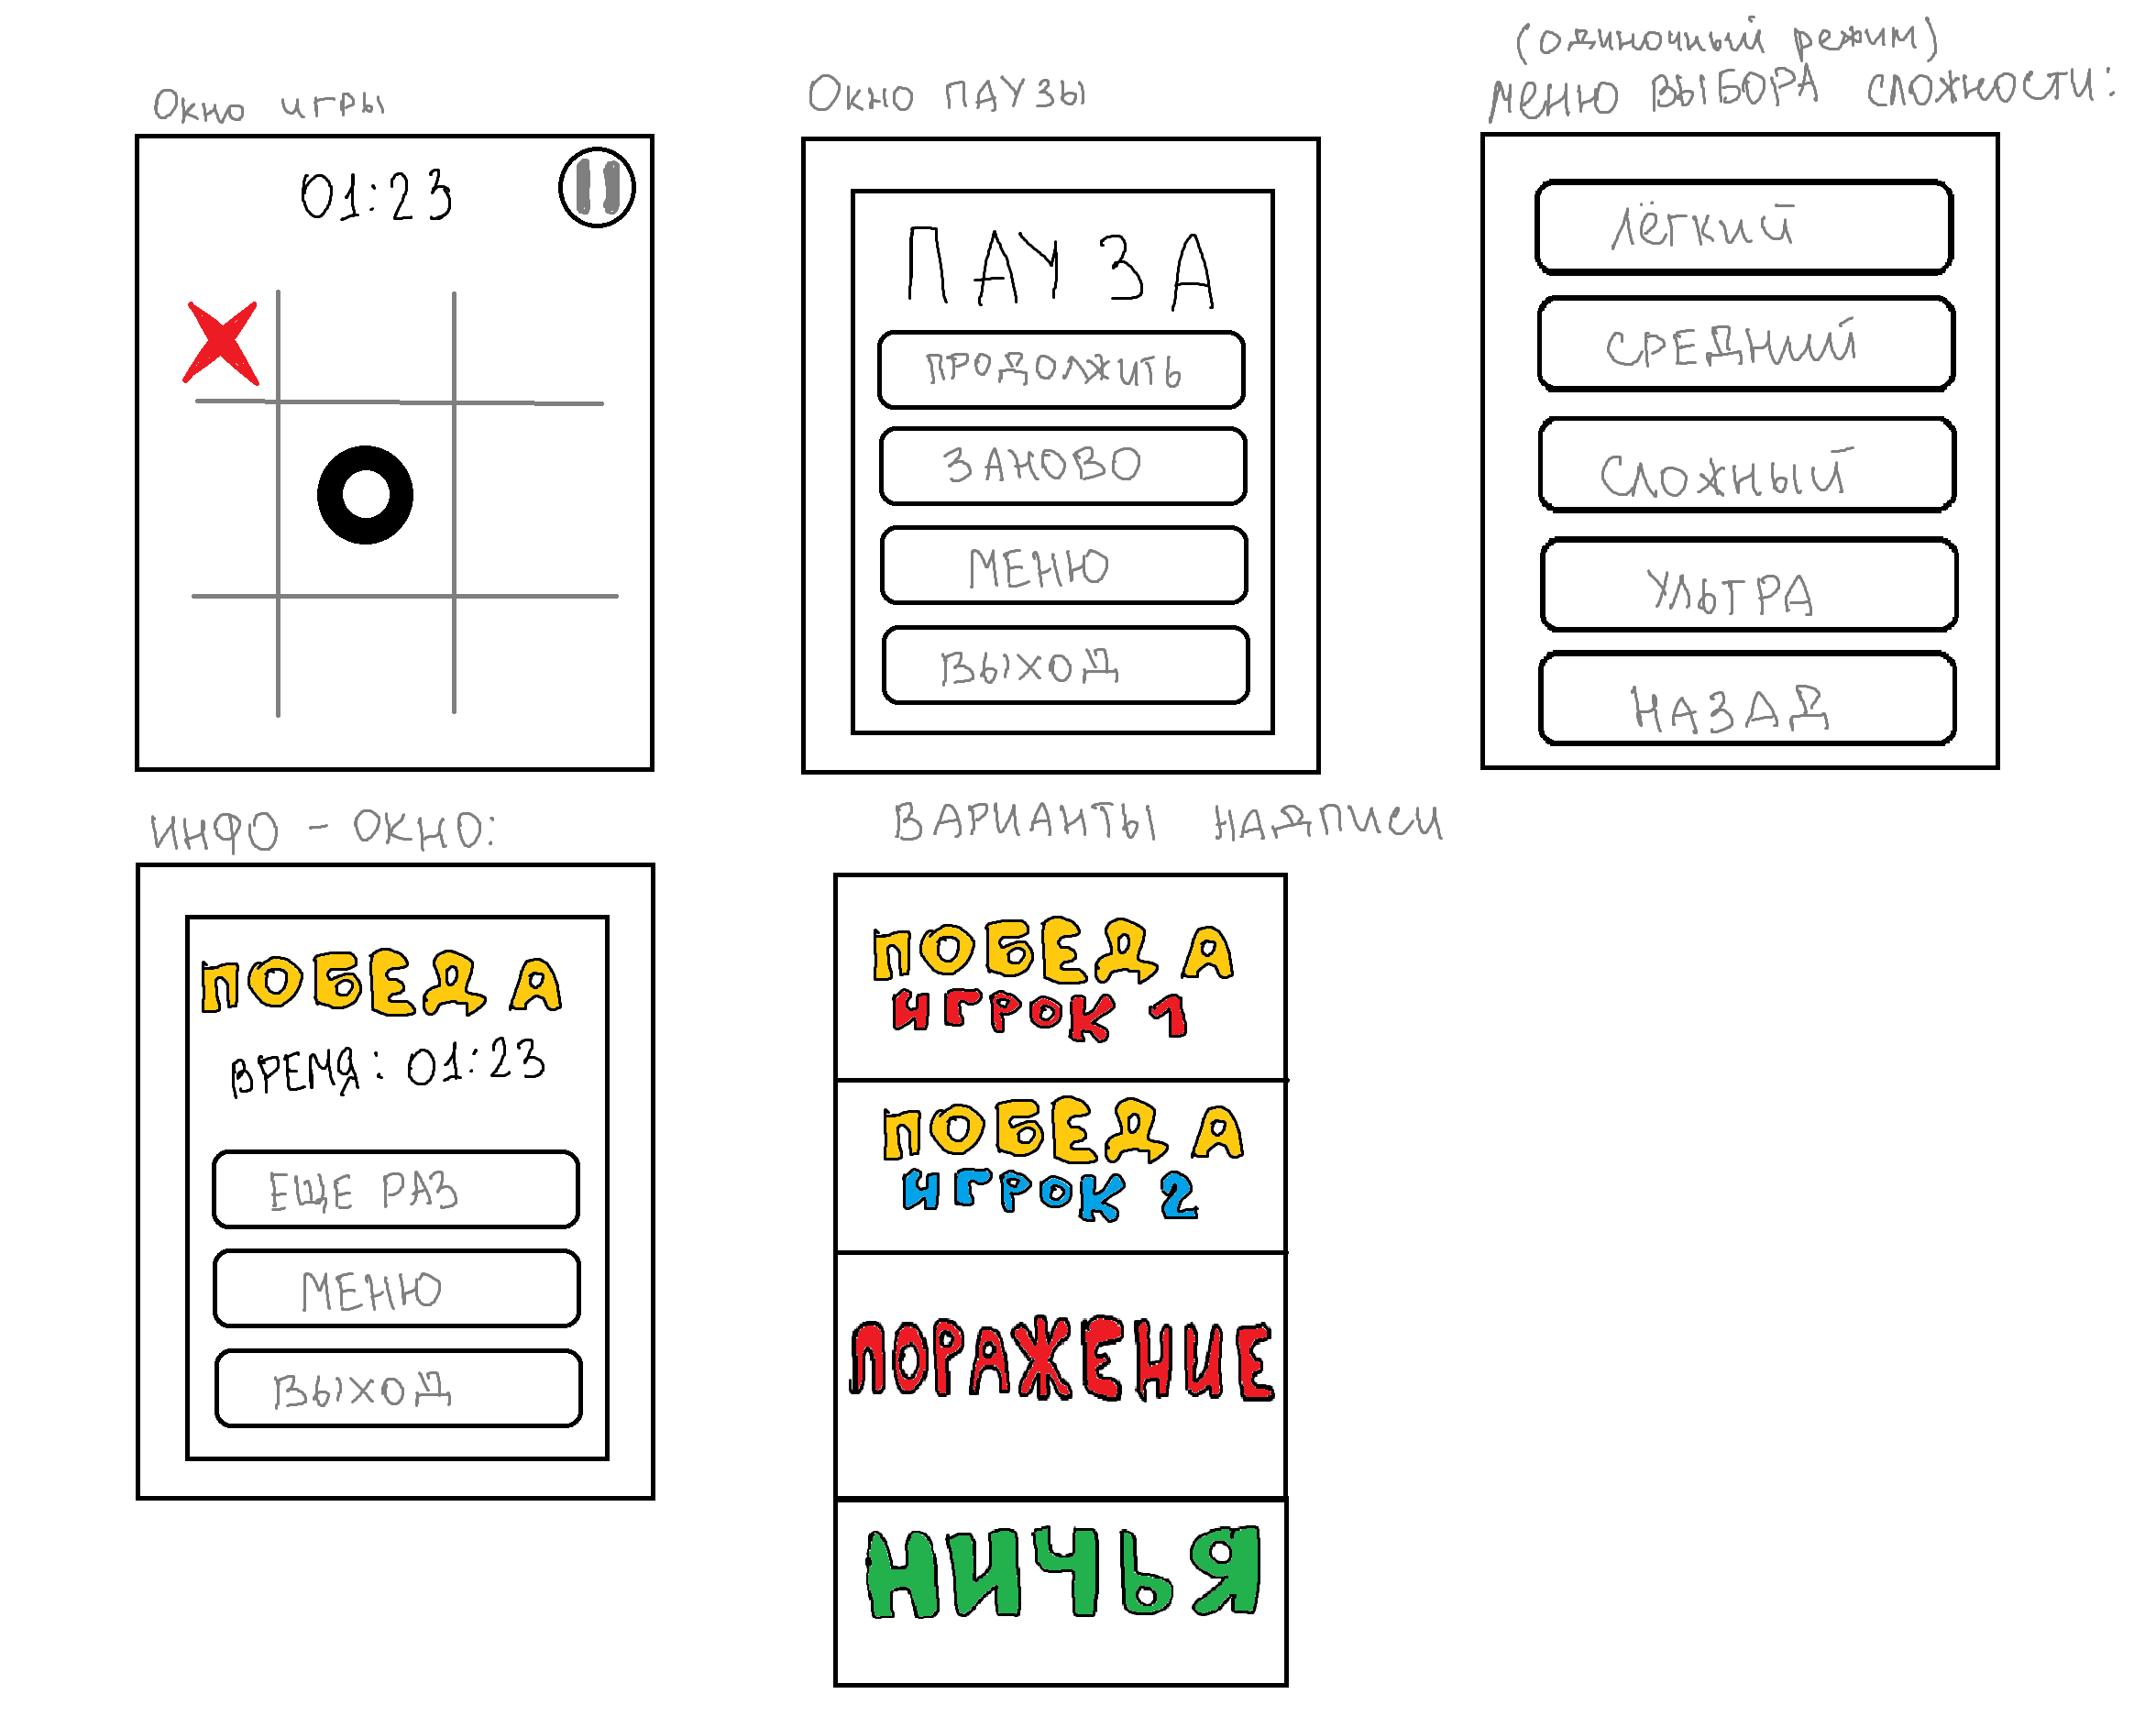 Окно игры
01:23
Окно ПАУЗЫ
ПАУЗА
ПРОДОЛЖИТЬ
ЗАНОВО
МЕНЮ
ВЫХОД
(одиночный режим)
МЕНЮ ВЫБОРА СЛОЖНОСТИ:
ЛЁГКИЙ
СРЕДНИЙ
СЛОЖНЫЙ
УЛЬТРА
НАЗАД
ИНФО - ОКНО:
ПОБЕДА
ВРЕМЯ: 01:23
ЕЩЕ РАЗ
МЕНЮ
ВЫХОД
ВАРИАНТЫ НАДПИСИ
ПОБЕДА
ИГРОК 1
ПОБЕДА
ИГРОК 2
ПОРАЖЕНИЕ
НИЧЬЯ